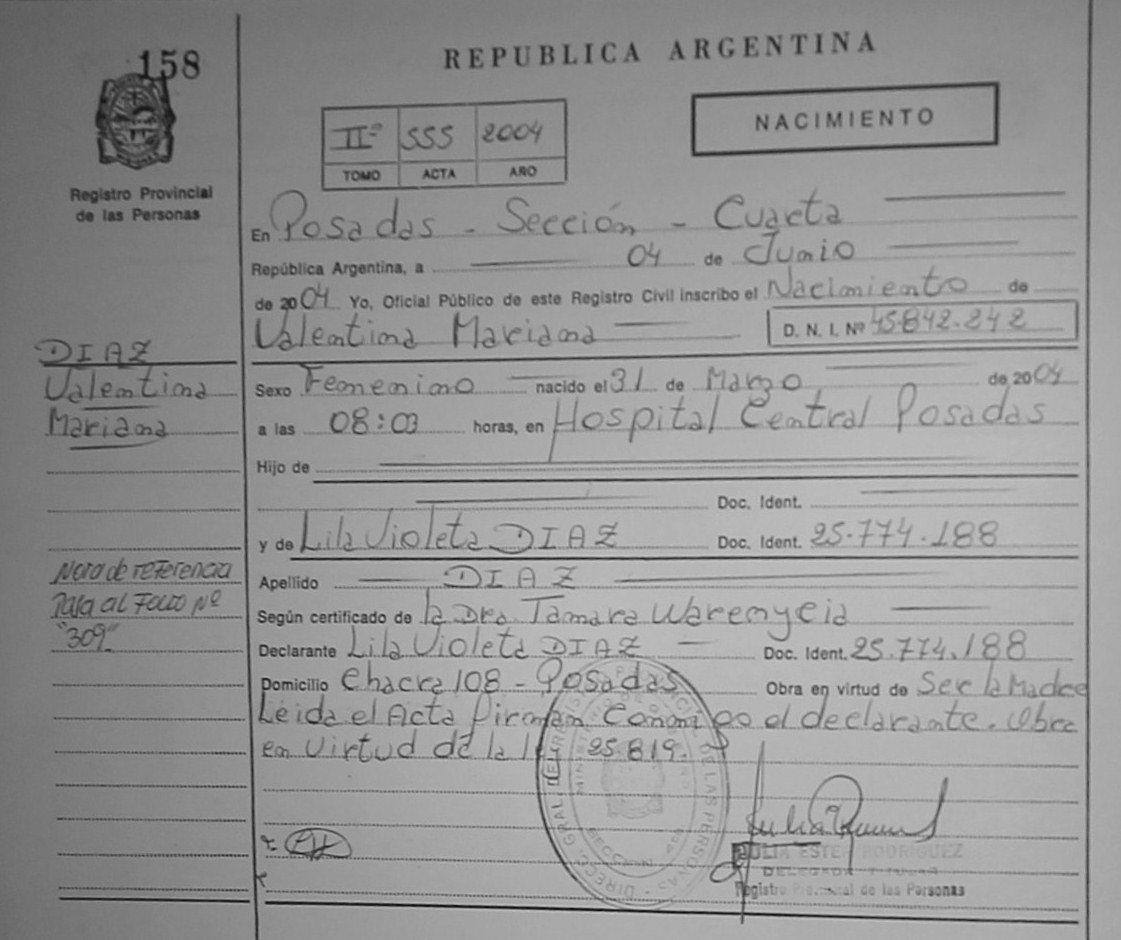 158
REPUBLICA ARGENTINA
NACIMIENTO
IIº 555 2004
TOMO ACTA AÑO
Registro Provincial
de las Personas
En Posadas - Sección - Cuarta
República Argentina, a 04 de Junio
de 2004 Yo, Oficial Público de este Registro Civil inscribo el Nacimiento de
Valentina Mariana D. N. I. Nº 45.842.242
DIAZ
Valentina
Mariana
Sexo Femenino nacido el 31 de Marzo de 2004
a las 08:03 horas, en Hospital Central Posadas
Hijo de
Doc. Ident.
y de Lila Violeta DIAZ Doc. Ident. 25.774.188
Nota de referencia
Pasa al Folio Nº
"309"
Apellido DIAZ
Según certificado de la Dra. Tamara Warenycia
Declarante Lila Violeta DIAZ Doc. Ident. 25.774.188
Domicilio Chacra 108 - Posadas Obra en virtud de Ser la Madre
Leida el Acta Firman Conmigo el declarante. Obra
en Virtud de la ley 25.819.
JULIA ESTER RODRIGUEZ
Registro Provincial de las Personas